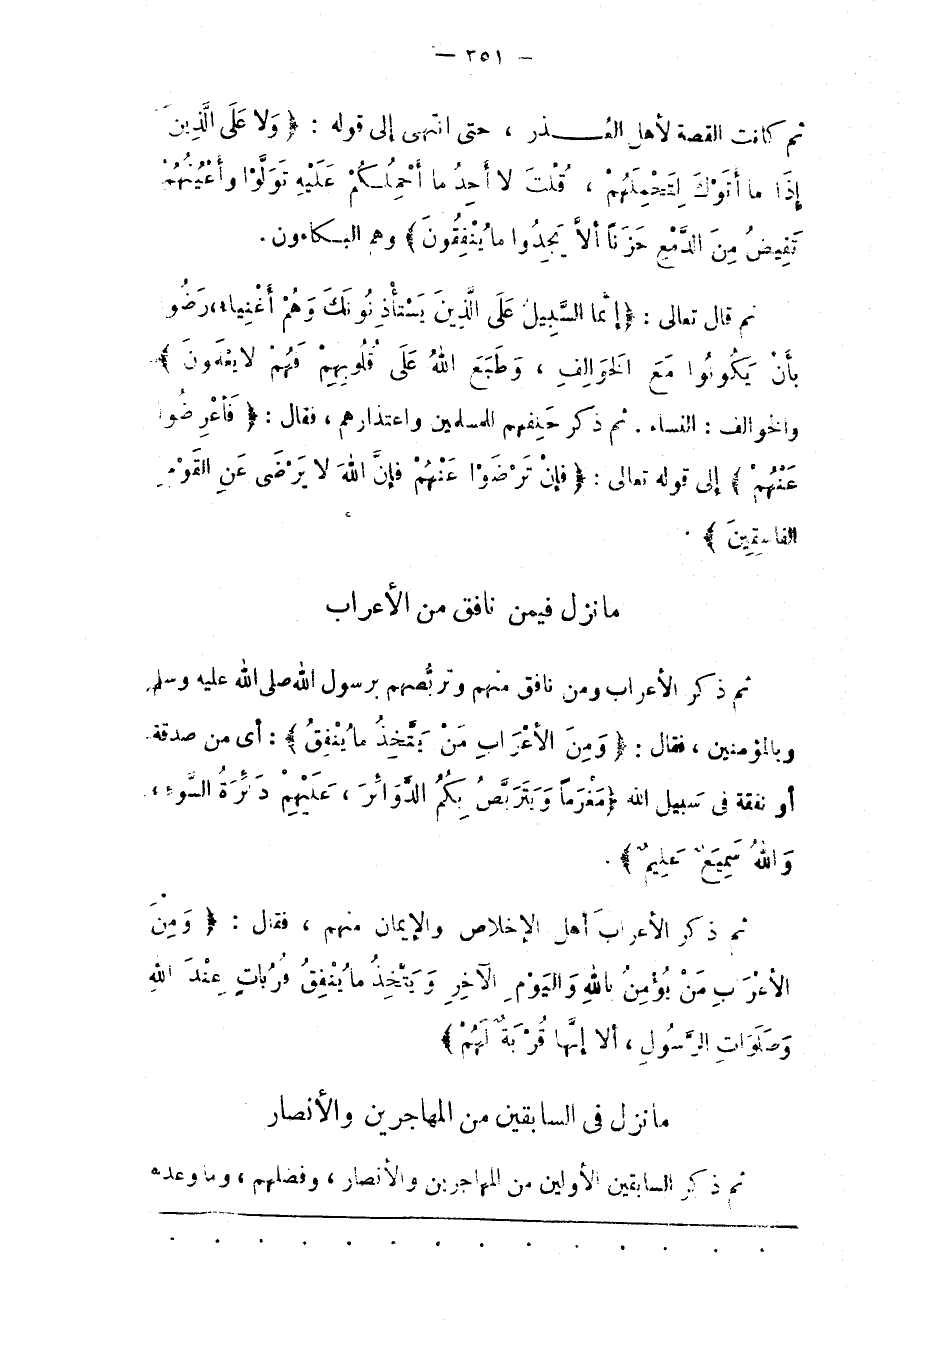 — ٣٥١ —
ثم كانت القصة لأهل العُـــــذر ، حتى انتهى إلى قوله : ﴿ وَلا عَلَى الَّذِينَ
إِذَا ما أَتَوْكَ لِتَحْمِلَهُمْ ، قُلْتَ لا أَجِدُ ما أَحْمِلُـكُمْ عَلَيْهِ تَوَلَّوْا وأَعْيُنُهُمْ
تَفِيضُ مِنَ الدَّمْعِ حَزَنًا ألاَّ يَجِدُوا ما يُنْفِقُونَ ﴾ وهم البـكاءون .
ثم قال تعالى : ﴿ إنَّما السَّبِيلُ عَلَى الَّذِينَ يَسْتأْذِنُونَكَ وَهُمْ أَغْنِياء، رَضُوا
بأَنْ يَكُونُوا مَعَ الخَوَالِفِ ، وَطَبَعَ اللهُ عَلَى قُلُوبِهِمْ فَهُمْ لا يعْلَمونَ ﴾
والخوالف : النساء . ثم ذكر حَلِفهم للمسلمين واعتذارهم ، فقال : ﴿ فَأعْرِضُوا
عَنْهُمْ ﴾ إلى قوله تعالى : ﴿ فإنْ تَرْضَوْا عَنْهُمْ فإنَّ اللهَ لا يَرْضَى عَنِ القَوْمِ
الفاسِقِينَ ﴾ .
ما نزل فيمن نافق من الأعراب
ثم ذكر الأعراب ومن نافق منهم وتربُّصهم برسول الله صلى الله عليه وسلم
وبالمؤمنين ، فقال : ﴿ وَمِنَ الأعْرَابِ مَنْ يَتَّخِذُ ما يُنْفِقُ ﴾ : أى من صدقة
أو نفقة فى سَبيل الله ﴿ مَغْرَماً وَيَتَرَبَّصُ بِكُمُ الدَّوَائرَ ، عَلَيْهِمْ دَائرَةُ السَّوْءِ ،
وَاللهُ سَمِيعٌ عَلِيمٌ ﴾ .
ثم ذكر الأعرابَ أهل الإخلاص والإيمان منهم ، فقال : ﴿ وَمِنَ
الأعْرَابِ مَنْ يُؤْمِنُ باللهِ وَاليَوْمِ الآخِرِ وَيَتَّخِذُ ما يُنْفِقُ قُرُباتٍ عِنْدَ اللهِ
وَصَلَوَاتِ الرَّسُولِ ، ألا إنَّها قُرْبَةٌ لَهُمْ ﴾
ما نزل فى السابقين من المهاجرين والأنصار
ثم ذكر السابقين الأولين من المهاجرين والأنصار ، وفضلهم ، وما وعده
. . . . . . . . . . . . . .